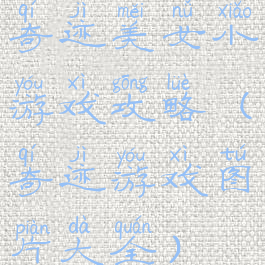 qí jì měi nǚ xiǎo
奇迹美女小
yóu xì gōng lüè
游戏攻略（
qí jì yóu xì tú
奇迹游戏图
piàn dà quán
片大全）